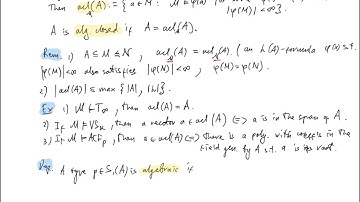 Then acl(A) := { a ∈ M : M ⊨ φ(a)
|φ(M)| < ∞ }
A is alg. closed if A = acl(A).
Rem. 1) A ⊆ M ≼ N, acl_M(A) = acl_N(A). (an L(A)-formula φ s.t.
|φ(M)| < ∞ also satisfies |φ(N)| < ∞, φ(M) = φ(N).
2) |acl(A)| ≤ max { |A|, |L| }.
Ex 1) M ⊨ T∞, then acl(A) = A.
2) If M ⊨ VS, then a vector a ∈ acl(A) ⟺ a is in the span of A.
3) If M ⊨ ACF_p, then a ∈ acl(A) ⟺ there is a poly. with coeffs in the
field gen by A s.t. a is its root.
A type p ∈ S₁(A) is algebraic if